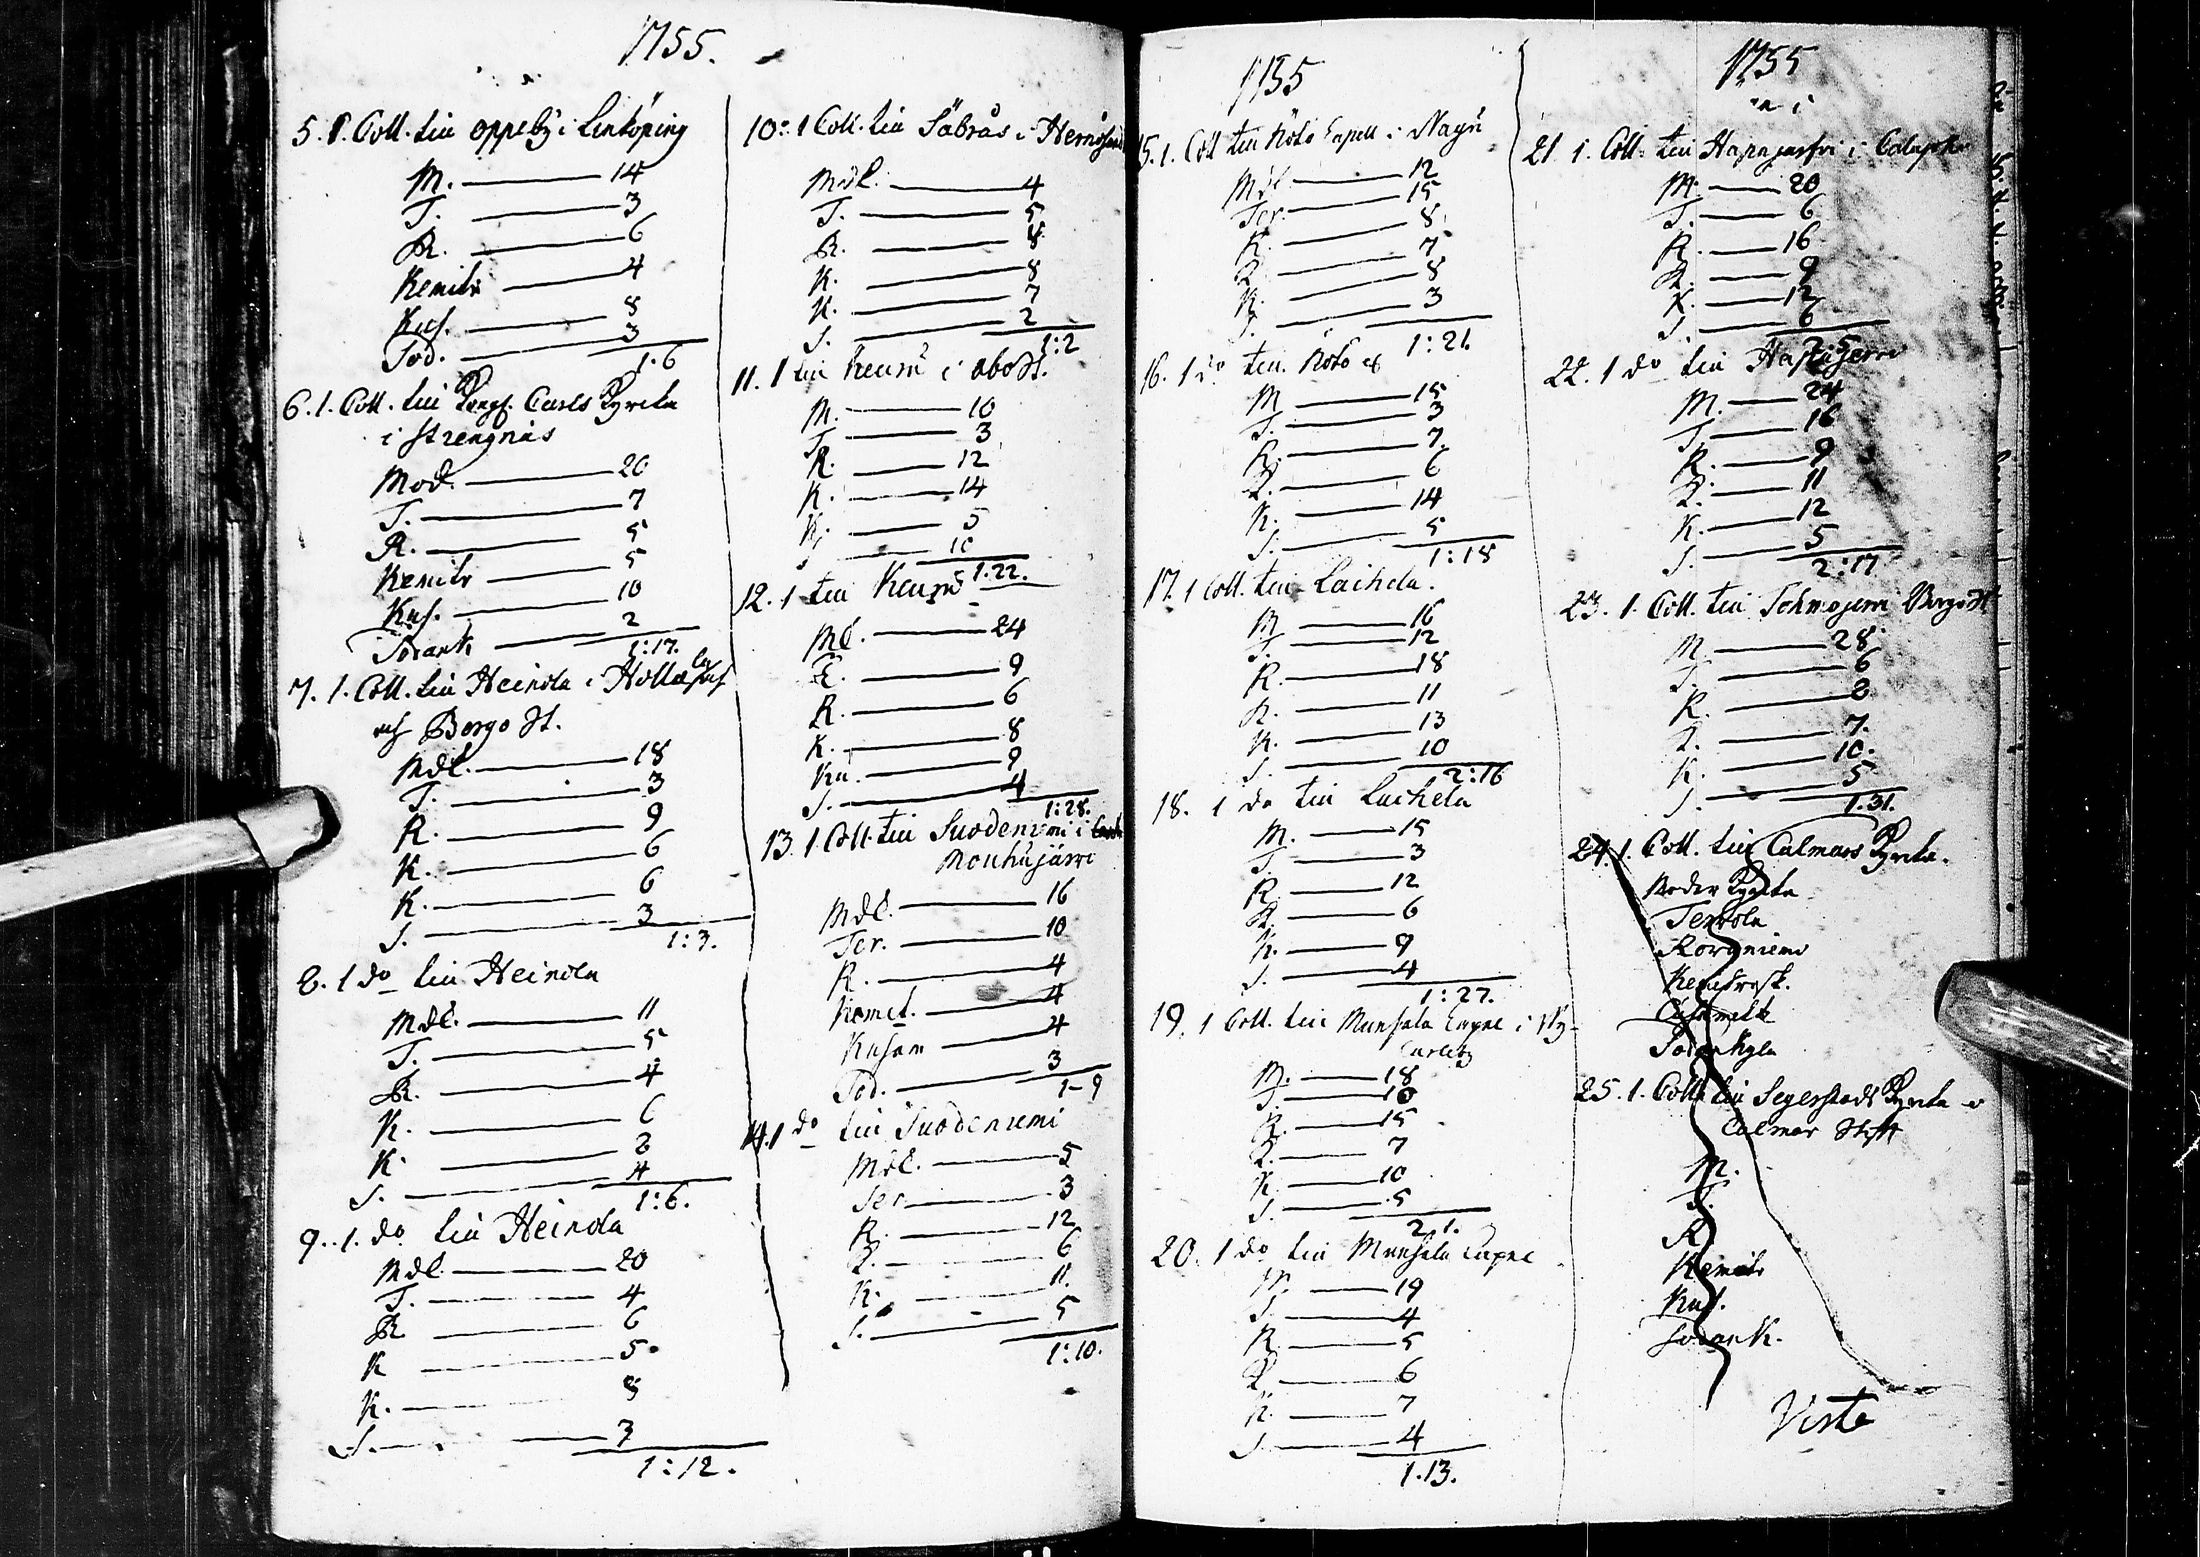 1755.
5. 1. Coll. til oppeby i Linköping
M. 14
T. 3
R. 6
Kemitr 4
Kus. 8
Sod. 3
1.6
6. 1. Coll. til Carls Kyrcka
i Strengnäs
Mod. 20
T. 7
R. 5
Kemitr 5
Kus. 10
Sodank 2
1:17.
7. 1. Coll. til Heinola i Hollola
och Borgo St.
Mdl. 18
T. 3
R. 9
K. 6
K. 6
S. 3
1:3.
8. 1 do til Heinola
Mdl. 11
T. 5
R. 4
K. 6
K. 8
S. 4
1:6.
9. 1. do til Heinola
Mdl 20
T. 4
R. 6
K 5
K. 8
S. 3
1:12.
10. 1 Coll. til Säbrås i Hernösand
Mdl. 4
T. 5
R. 8
K. 8
K. 7
S. 2
1:2
11. 1 til Keuru i Abo St.
M. 10
T. 3
R. 12
K. 14
K. 5
10
1.22.
12. 1 til Keuru
Ml. 24
T. 9
R. 6
K. 8
Ku. 9
S. 4
1:28.
13. 1. Coll. til Suodeniemi i
Mouhijärvi
Mdl. 16
Ter. 10
R. 4
Kemit. 4
Kusam 4
Sod. 3
1-9
14. 1 do til Suodeniemi
Mdl. 5
Ter 3
R. 12
K. 6
K. 11.
S. 5
1:10.
1755
15. 1. Coll til Nöto Capell i Nagu
Mdl. 12
Ter. 15
R. 8
K. 7
K. 8
S. 3
1:21.
16. 1 do til Nöto
M 15
T. 3
R. 7.
K. 6
K. 14
S. 5
1:18
17. 1 Coll. til Laihela.
M 16
T. 12
R. 18
K. 11
K. 13
S. 10
2:16
18. 1 do til Laihela
M. 15
T. 3
R. 12
K. 6
K. 9
S. 4
1:27.
19. 1 Coll. til Munsala Capel i Ny-
Carleby
M. 18
T. 10
R. 15
K. 7
K. 10
S. 5
2.1.
20. 1 do til Munsala Capel
M. 19
T. 4
R. 5
K. 6
K. 7
S. 4
1.13.
1755
21. 1. Coll. til Hapajerfvi i
M. 20
T. 6
R. 16
K. 9
K. 12
S. 6
2.5
22. 1 do til Hapajerwi
M. 24
T. 16
R. 9
K. 11
K. 12
S. 5
2:17
23. 1. Coll. til Borgo St
M. 28
T. 6
R. 8
K. 7.
K. 10.
S. 5
1.31.
24. 1. Coll. til Calmars Kyrcka.
Moder Kyrcka
Tervola
Rovaniemi
Kemitresk.
Sodankyla
25. 1. Coll til Segerstads Kyrcka i
Calmar Stift
M.
T.
R
Kemitr
Kus.
Sodank.
Viste